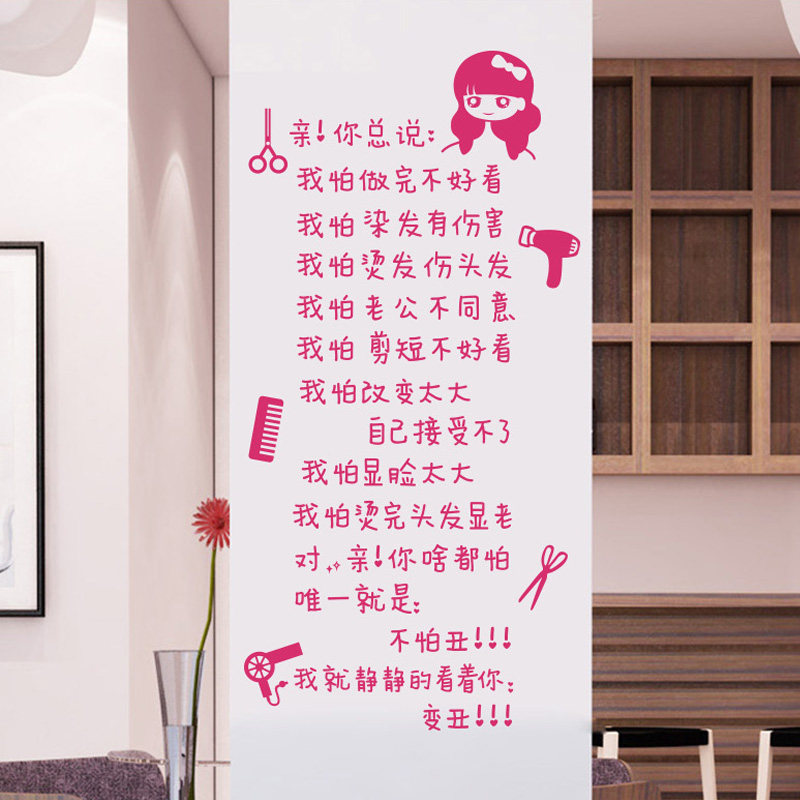 亲!你总说:
我怕做完不好看
我怕染发有伤害
我怕烫发伤头发
我怕老公不同意
我怕剪短不好看
我怕改变太大
自己接受不了
我怕显脸太大
我怕烫完头发显老
对..亲!你啥都怕
唯一就是:
不怕丑!!!
我就静静的看着你:
变丑!!!